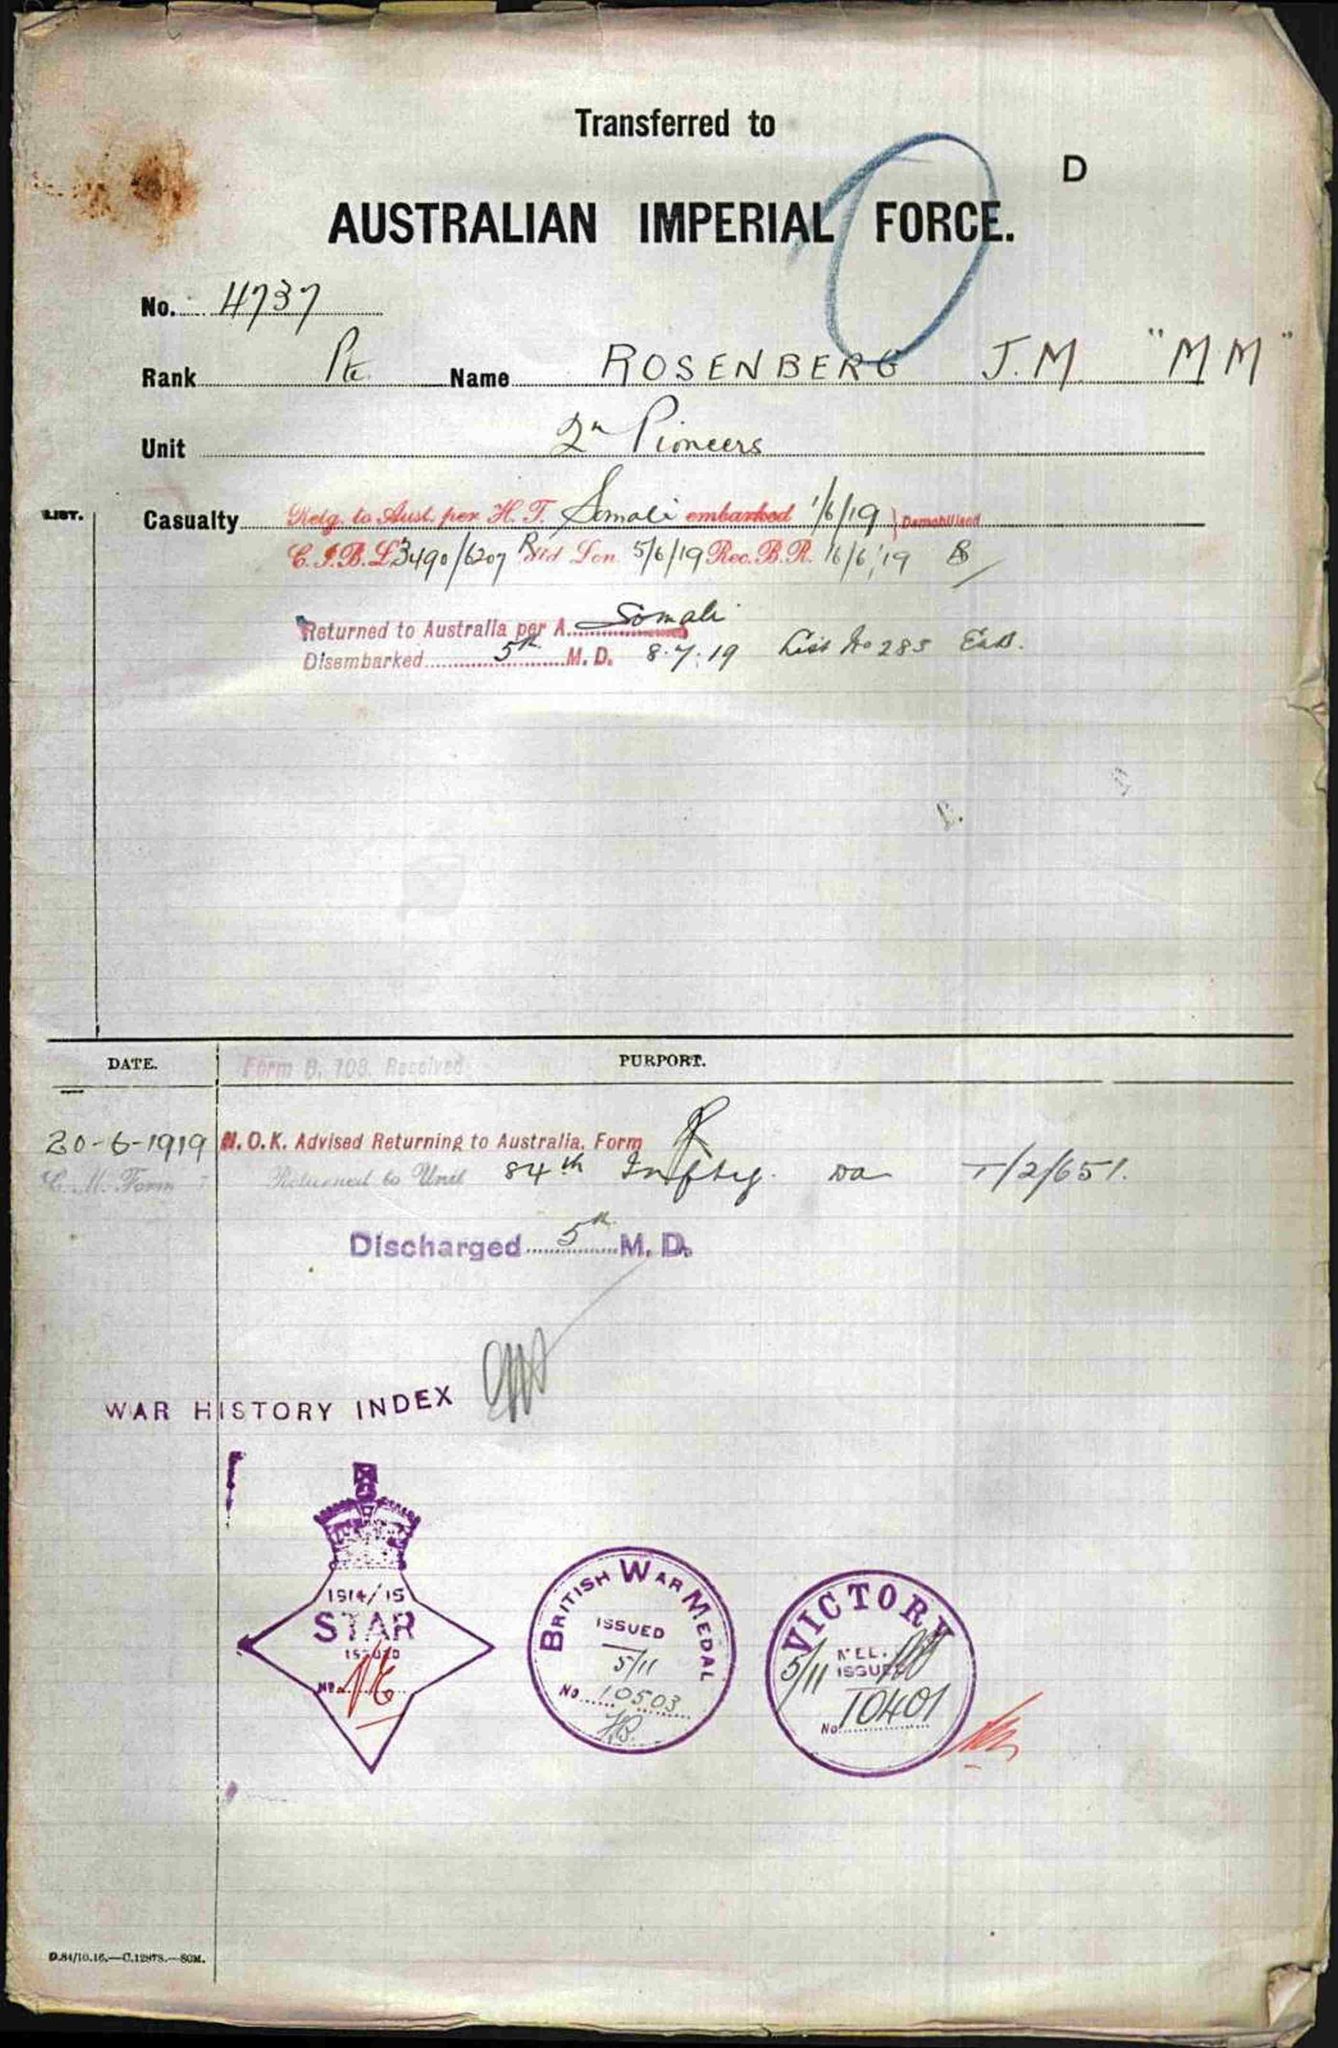 Transferred to
D
AUSTRALIAN IMPERIAL FORCE.
No. 4737
Rank Pte. Name ROSENBERG J.M. "MM"
Unit 2n Pioneers
LIST.
Casualty Retg. to Aust. per H. T. Somali embarked 1/6/19 Demobilised
C.I.B.L 3490/6207 Lon 5/6/19 Rec. B.R. 16/6/19
Returned to Australia per A. Somali
Disembarked 5th M. D. 8.7.19 List No 285
DATE. PURPORT.
Form B. 103. Received
20-6-1919 N.O.K. Advised Returning to Australia. Form
C. M. Form Returned to Unit 84th Inftry. T/2/651.
Discharged 5th M. D.
WAR HISTORY INDEX
1914/15
STAR
ISSUED
No.
BRITISH WAR MEDAL
ISSUED
5/11
No 10503
VICTORY
5/11 MEL.
ISSUED
No 10401
D.84/10.16.—C.12878.—80M.